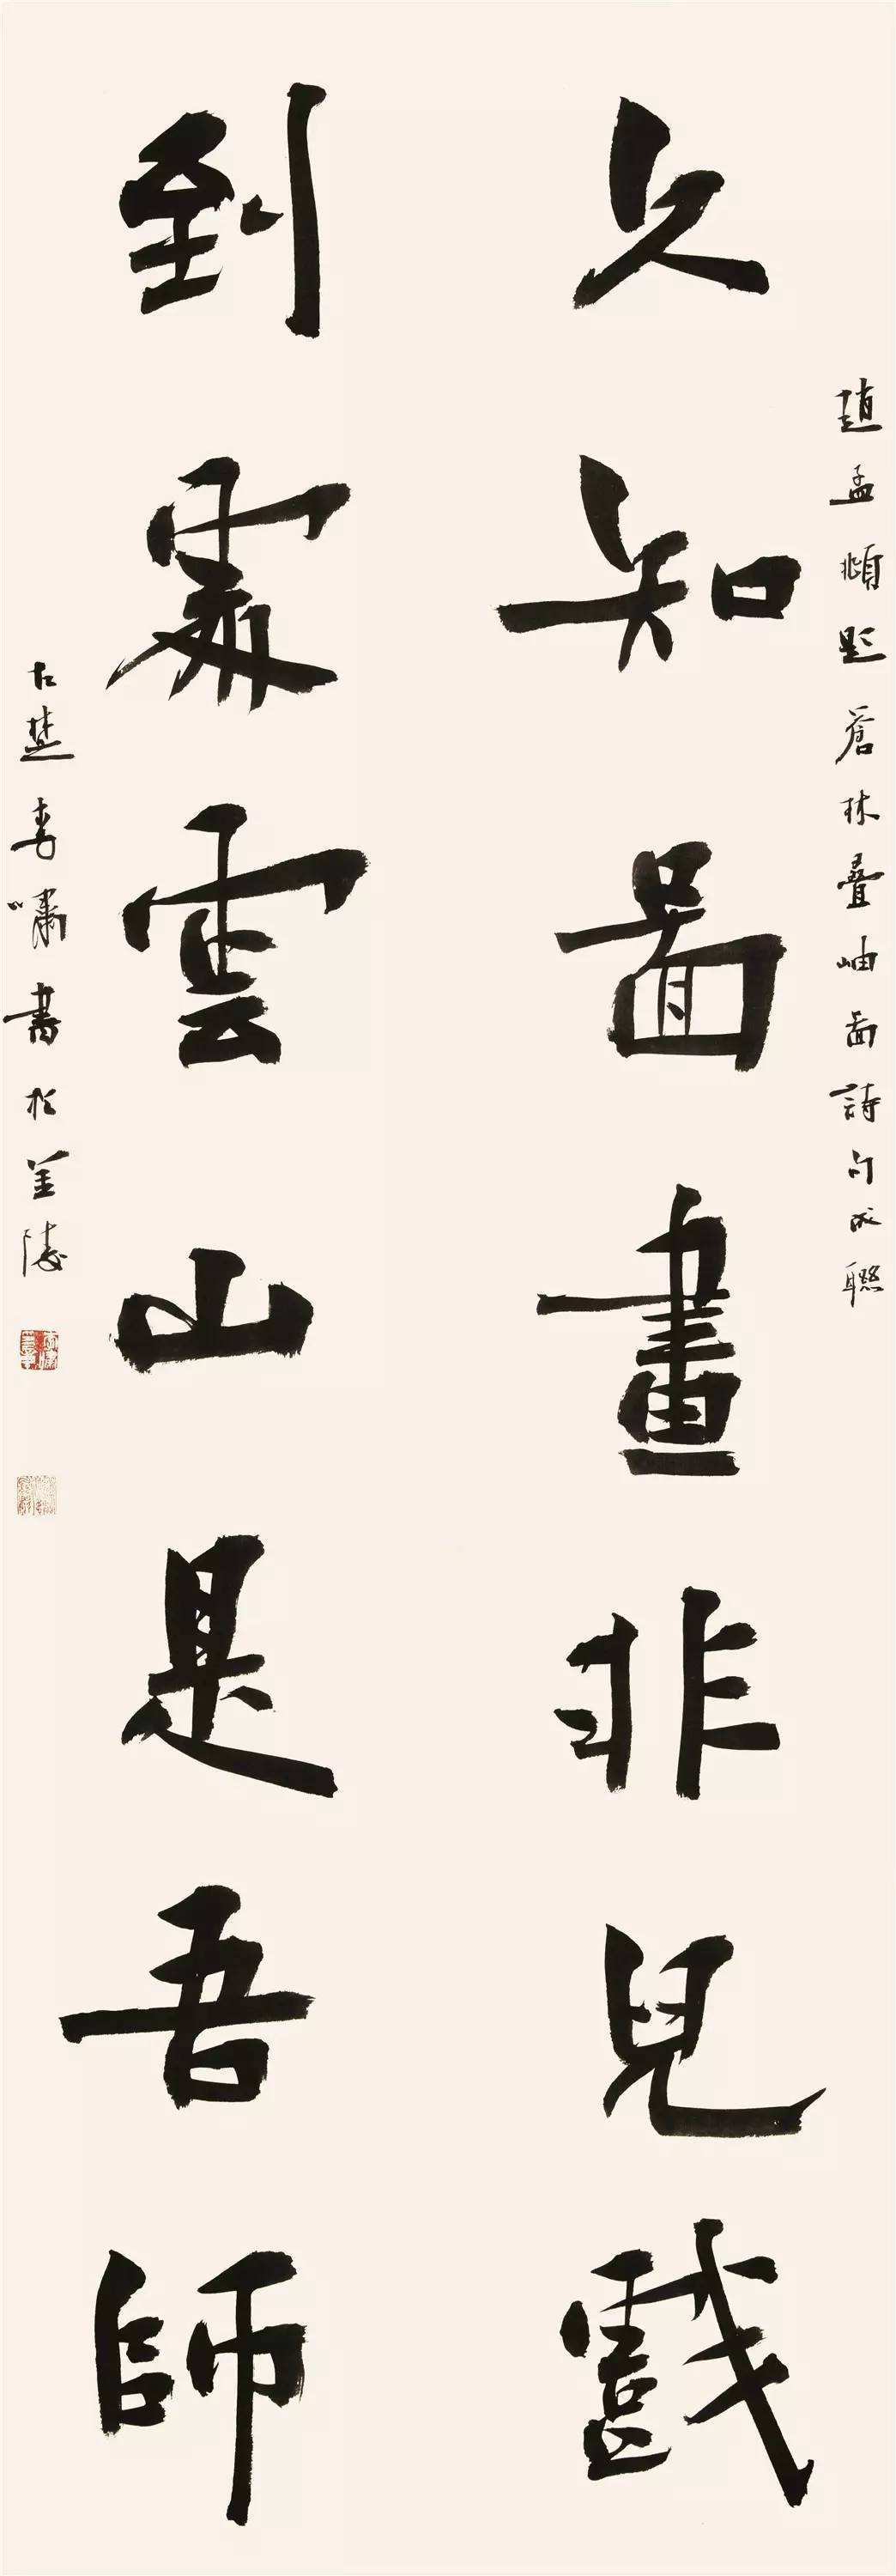 趙孟頫題蒼林疊岫圖詩句成聯
久知圖畫非兒戲
到處雲山是吾師
古楚李嘯書於金陵